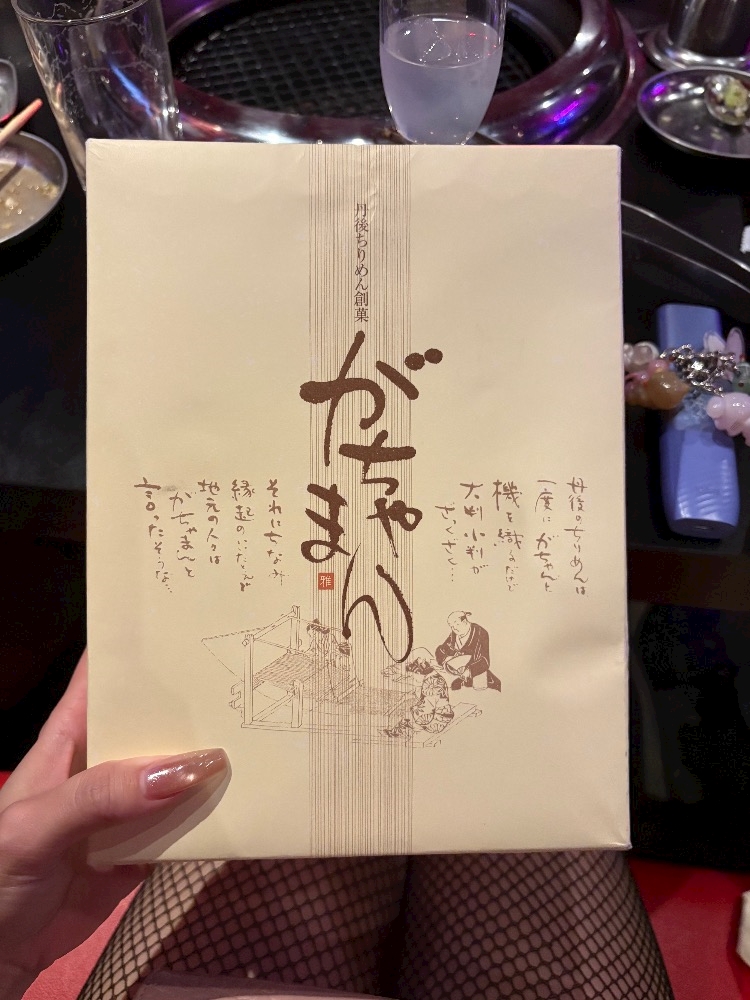 丹後ちりめん創菓
がちゃまん
雅
丹後のちりめんは
一度にがちゃんと
機を織るだけで
大判小判が
ざくざく…
それにちなみ
縁起のいたゞと
地元の人々は
がちゃまんと
言ったそうな…